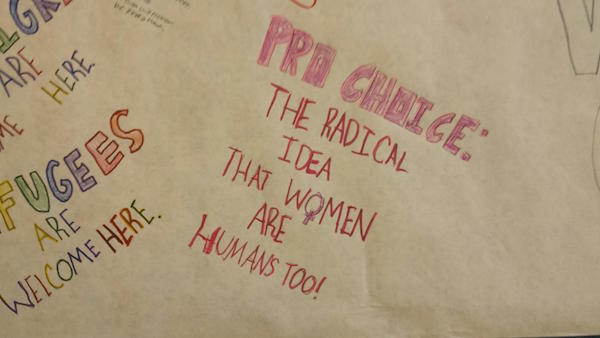 ARE
HERE.
FUGEES
ARE
WELCOME HERE.
PRO CHOICE:
THE RADICAL
IDEA
THAT WOMEN
ARE
HUMANS TOO!